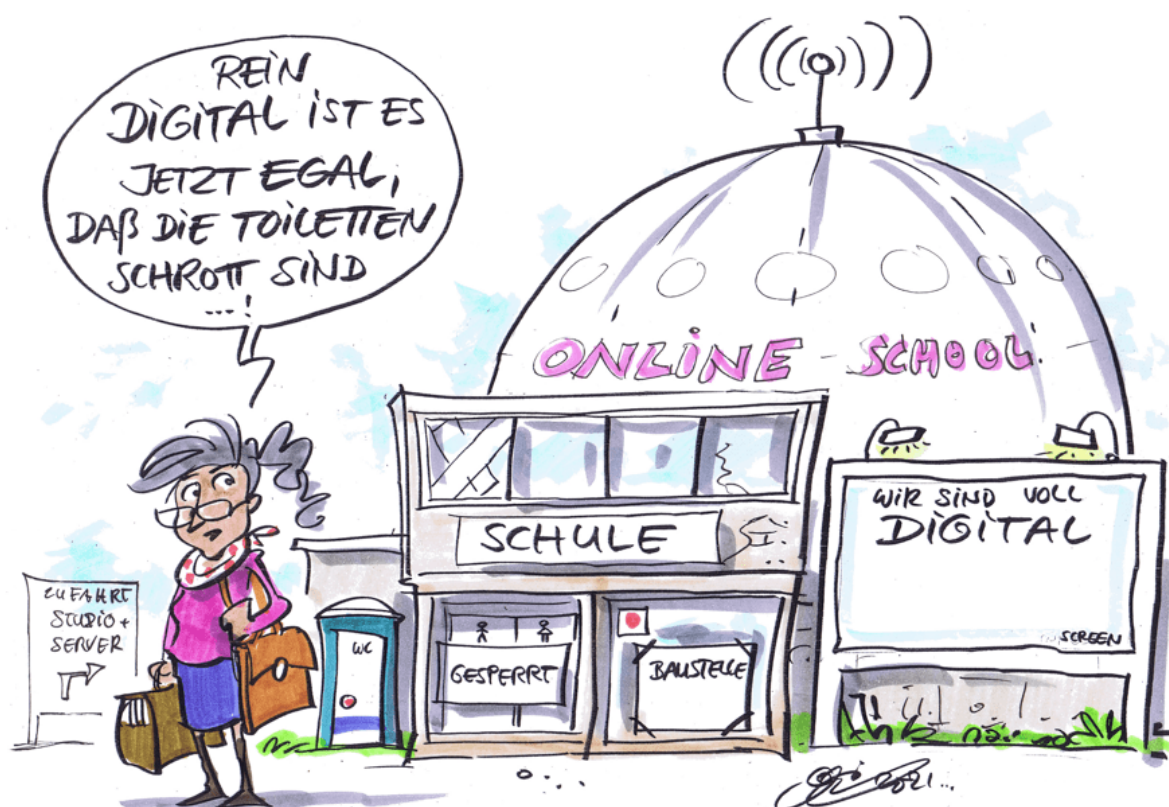 REIN
DIGITAL IST ES
JETZT EGAL,
DAß DIE TOILETTEN
SCHROTT SIND
...!
ONLINE - SCHOOL.
WIR SIND VOLL
DIGITAL
SCREEN
SCHULE
ZUFAHRT
STUDIO +
SERVER
WC
GESPERRT
BAUSTELLE
2021...